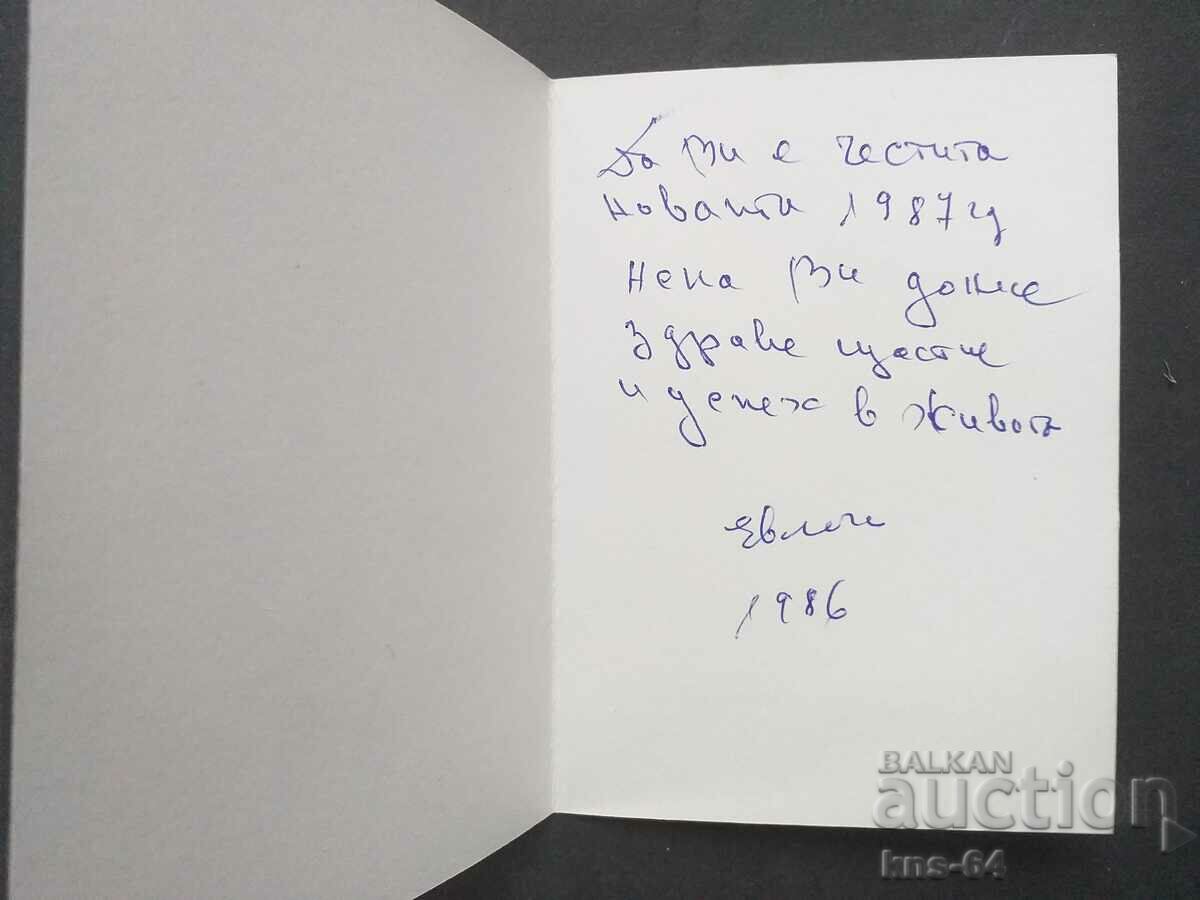 Да Ви е честита
новата 1987 г
нека Ви донесе
здраве щастие
и успех в живота
1986
BALKAN
auction
kns-64